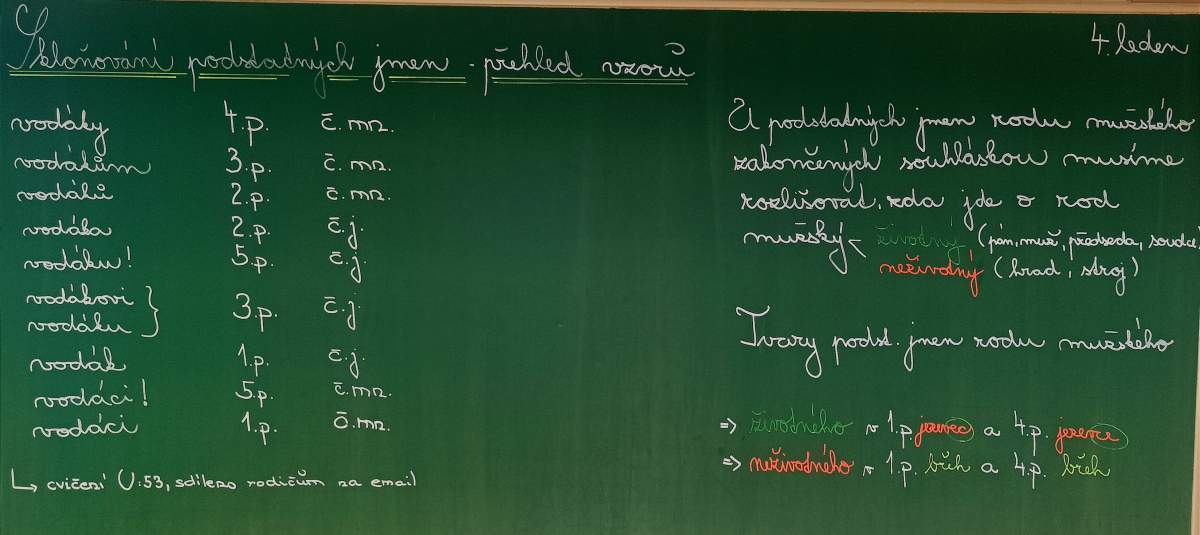 4. leden
Skloňování podstatných jmen - přehled vzorů
vodáky 4.p. č. mn.
vodákům 3.p. č. mn.
vodáků 2.p. č. mn.
vodáka 2.p. č.j.
vodáku! 5.p. č.j.
vodákovi
vodáku } 3.p. č.j.
vodák 1.p. č.j.
vodáci! 5.p. č.mn.
vodáci 1.p. č.mn.
↳ cvičení U:53, sdíleno rodičům na email
U podstatných jmen rodu mužského
zakončených souhláskou musíme
rozlišovat, zda jde o rod
mužský < životný (pán, muž, předseda, soudce)
neživotný (hrad, stroj)
Tvary podst. jmen rodu mužského
=> životného v 1.p. jezevec a 4.p. jezevce
=> neživotného v 1.p. břeh a 4.p. břeh